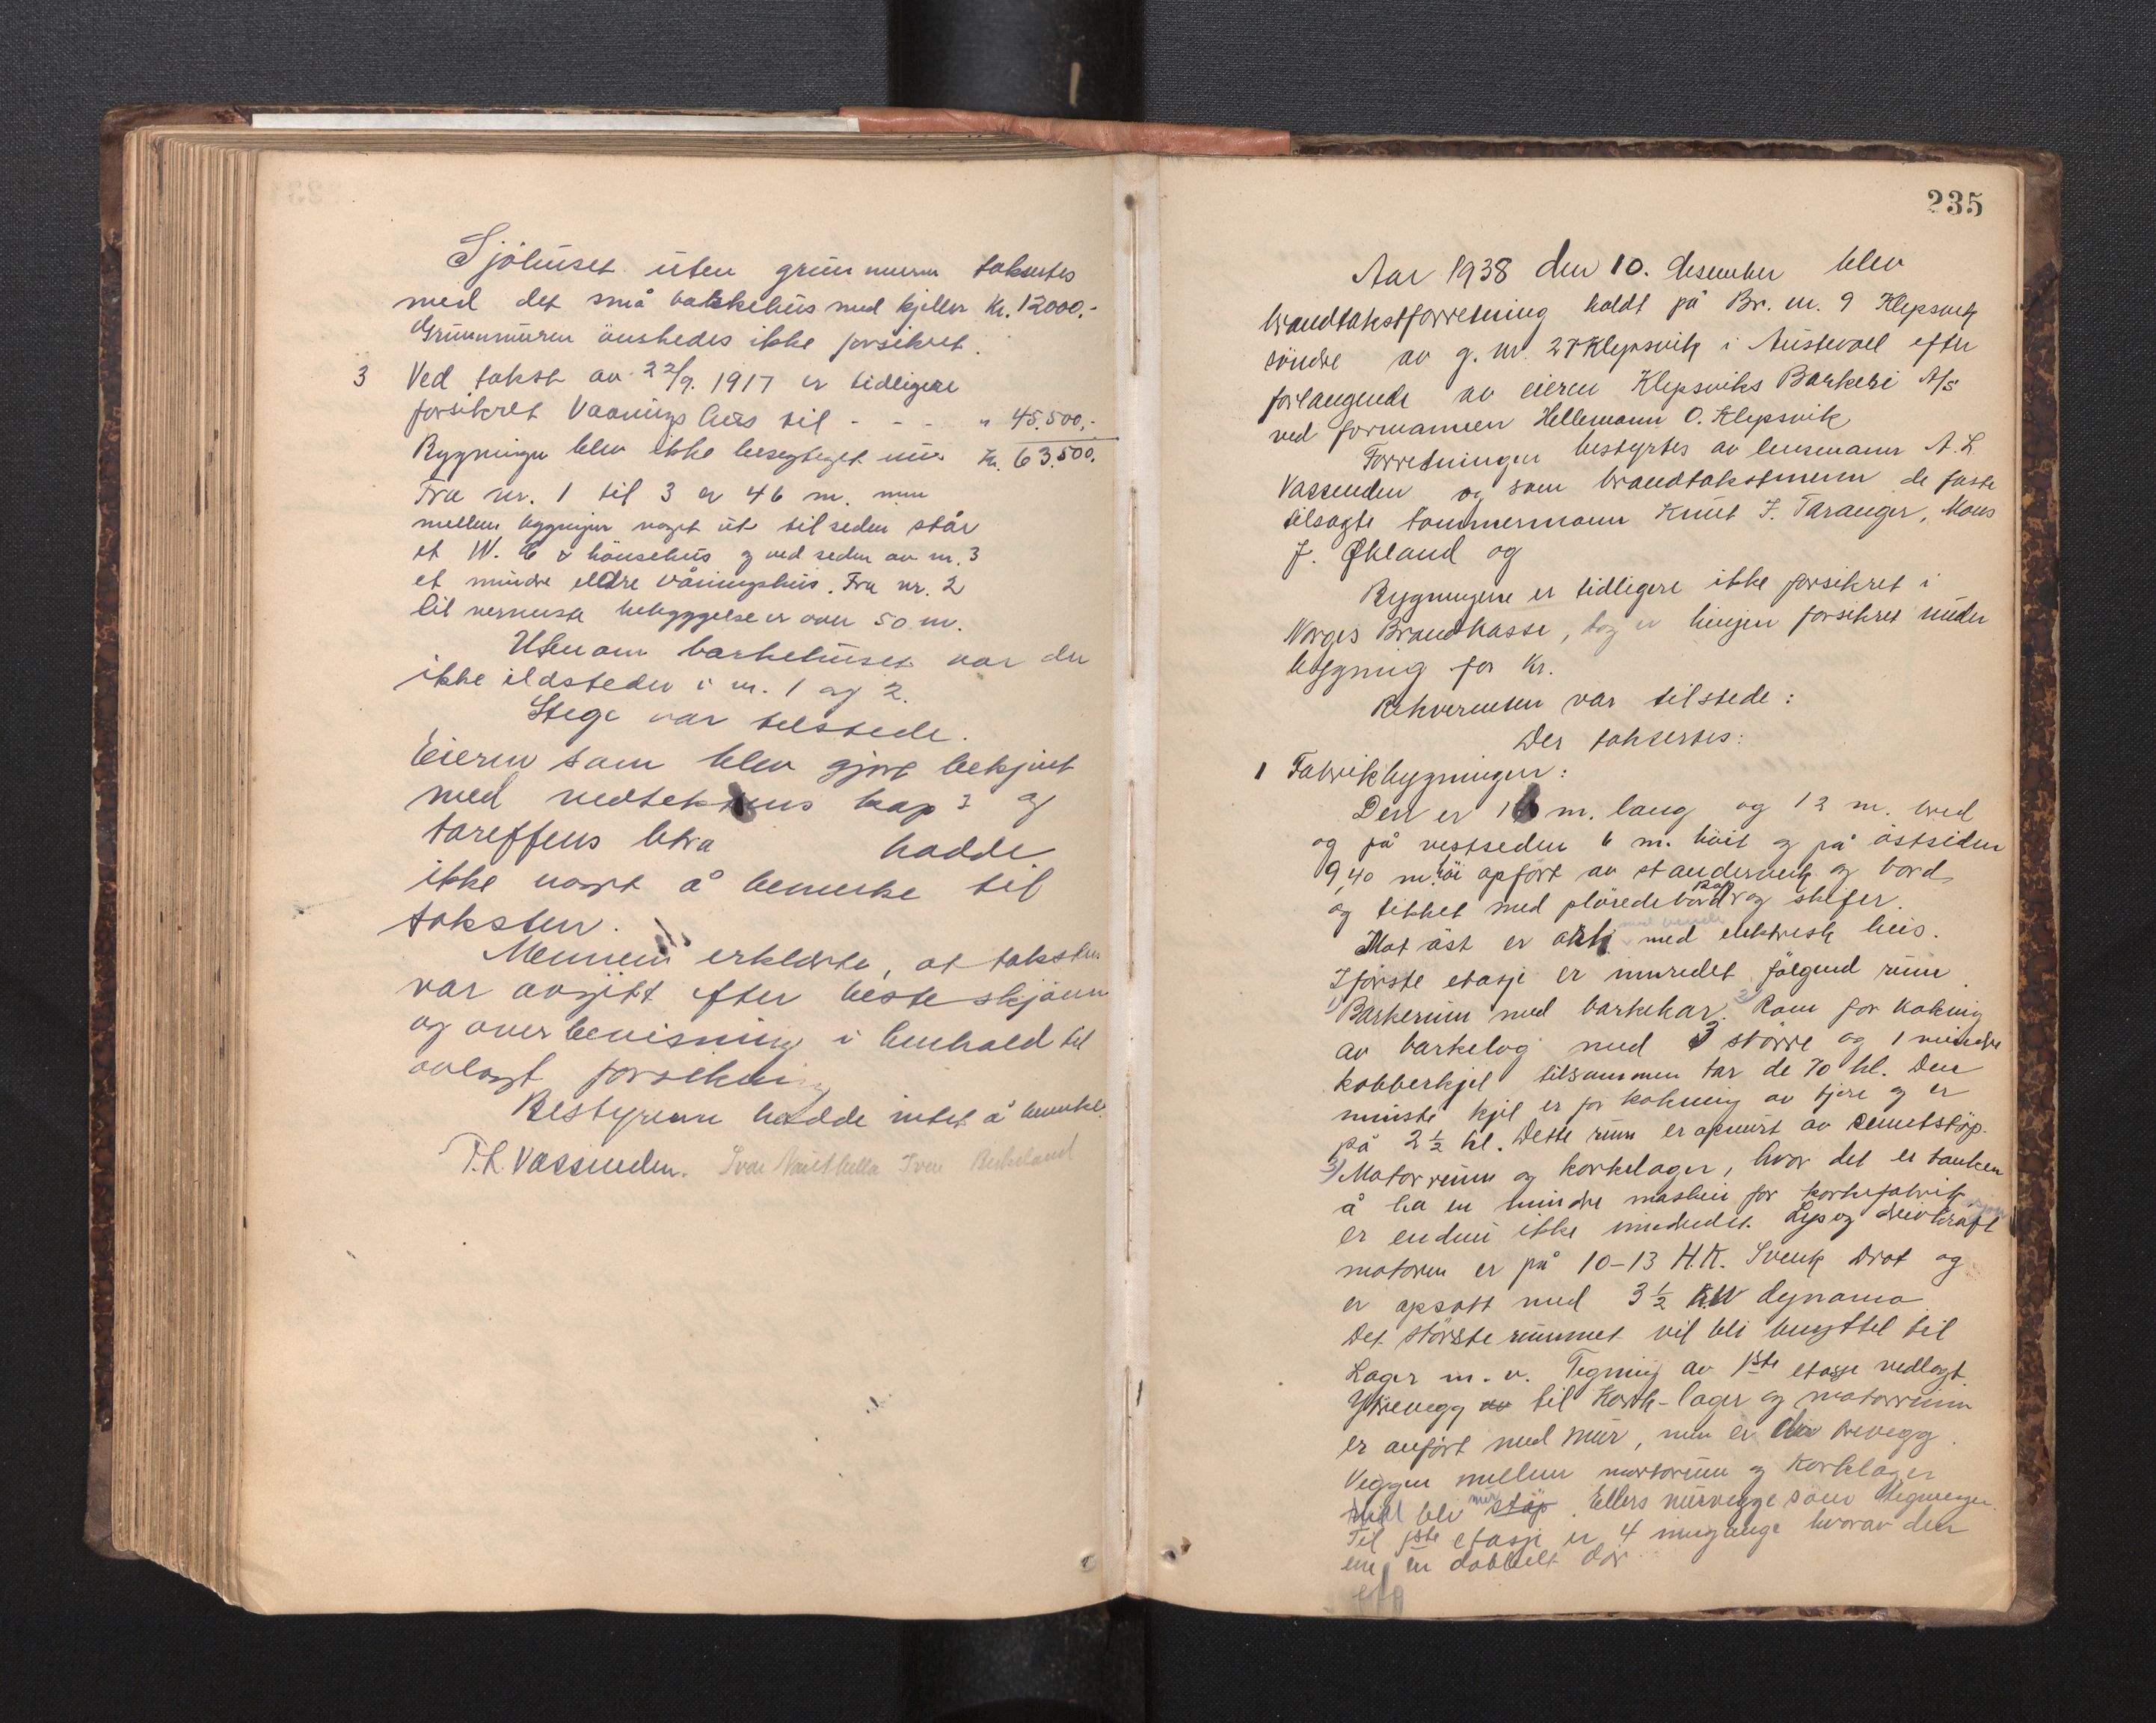 Sjöhuset uten grunmuren taksertes
med det små barkehus med kjeller Kr. 12000.-
Grunnmuren önskedes ikke forsikret.
3 Ved takst av 22/9. 1917 er tidligere
forsikret Vaaningshus til - - - " 45.500,-
Bygningen blev ikke besegtiget nu. Kr. 63.500.
Fra nr. 1 til 3 er 46 m. men
mellem bygninger noget ut til seden står
et W. C & hönsehus og ved seden av nr. 3
et mindre eldre våningshus. Fra nr. 2
til nermeste bebyggelse er over 50 m.
Utenom barkehuset var der
ikke ildsteder i nr. 1 og 2.
Stege var tilstede.
Eieren som blev gjort bekjent
med vedtektens kap 3 og
tareffens litra hadde
ikke noget å bemerke til
taksten.
Mennene erklærte, at taksten
var avgitt efter beste skjönn
og overbevisning i henhold til
avlagt forsikring
Bestyreren hadde intet å bemerke.
T. L. Vassenden. Ivar Birkeland
235
Aar 1938 den 10. desember blev
brandtakstforretning holdt på Br. nr. 9 Klepsvik
söndre av g. nr. 27 Klepsvik i Austevoll efter
forlangende av eieren Klepsviks Barkeri A/S
ved formannen Hellemann O. Klepsvik
Forretningen bestyrtes av lensmann A. L.
Vassenden og som brandtakstmenn de faste
tilsagte tømmermann Knut J. Taranger, Mons
J. Økland og
Bygningene er tidligere ikke forsikret i
Norges Brandkasse, dog er hingen forsikret under
bygging for Kr.
Rekvirenten var tilstede:
Der taksertes:
1 Fabrikbygningen:
Den er 16 m. lang og 12 m. bred
og på vestseden 6 m. höit og på östsiden
9,40 m. höi opfört av standerverk og bord,
og tekket med plöiedebord Pap og skifer.
Mot öst er ark med elektrisk heis.
I förste etasje er innredet fölgend rum
1) Barkerum med barkekar. 2) Rom for koking
av barkelog med 3 större og 1 mindre
kobberkjel tilsammen tar de 70 hl. Den
minste kjel er for kokning av tjere og er
på 2 1/2 hl. Dette rum er opmurt av sementstöp.
3) Motorrum og korkelager, hvor det er tanken
å ha en mindre maskin for korkefabrik
er endnu ikke inredet. Lys og drivkraft
motoren er på 10-13 H.K. Svensk Drot og
er opsatt med 3 1/2 KW dynamo
Det störste rummet vil bli benyttet til
Lager m. v. Tegning av 1ste etasje vedlagt.
Yttrevegg av til Kork-lager og motorrum
er anfört med mur, men er trevegg.
Veggen mellem motorrum og Korklager
skal bli mur stöp. Ellers murvegge som tegningen.
Til 1ste etasje er 4 inngange hvorav den
ene en dobbelt dör